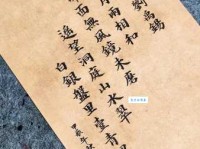 劉禹錫
月兩相和
面無風鏡未磨
遥望洞庭山水翠
白銀盤里壹青
甲辰